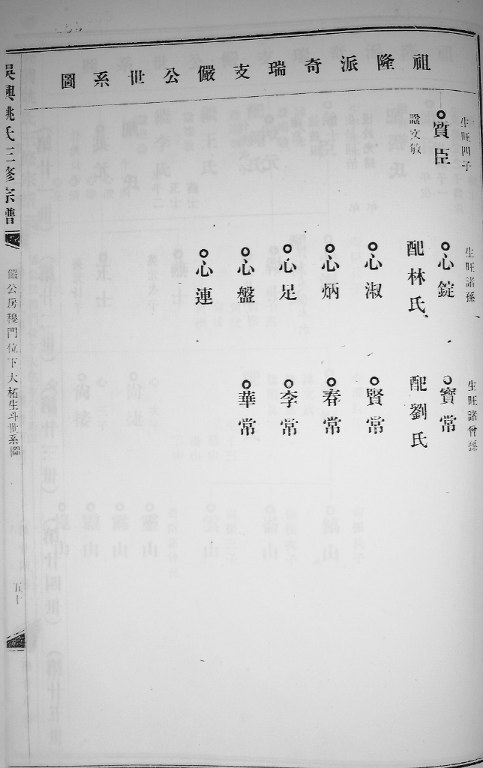 祖隆派奇瑞支儼公世系圖
生旺四子
質臣
諡文敏
生旺諸孫
心錠
配林氏
心淑
心炳
心足
心盤
心連
生旺諸曾孫
寶常
配劉氏
賢常
春常
李常
華常
吳興姚氏三修宗譜
儼公房
門位下大
生斗世系圖
五十